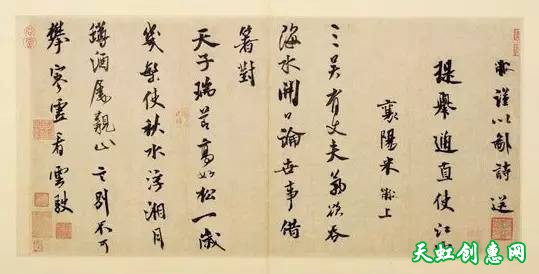 黻謹以鄙詩送
提舉通直使江西
襄陽米黻上
三吳有丈夫氣欲吞
海水開口論世事借
箸對
天子瑞節高如松一歲
幾繁使秋水浮湘月
罇酒屬觀山言別不可
攀寒雲看雲駛
天虹创意网